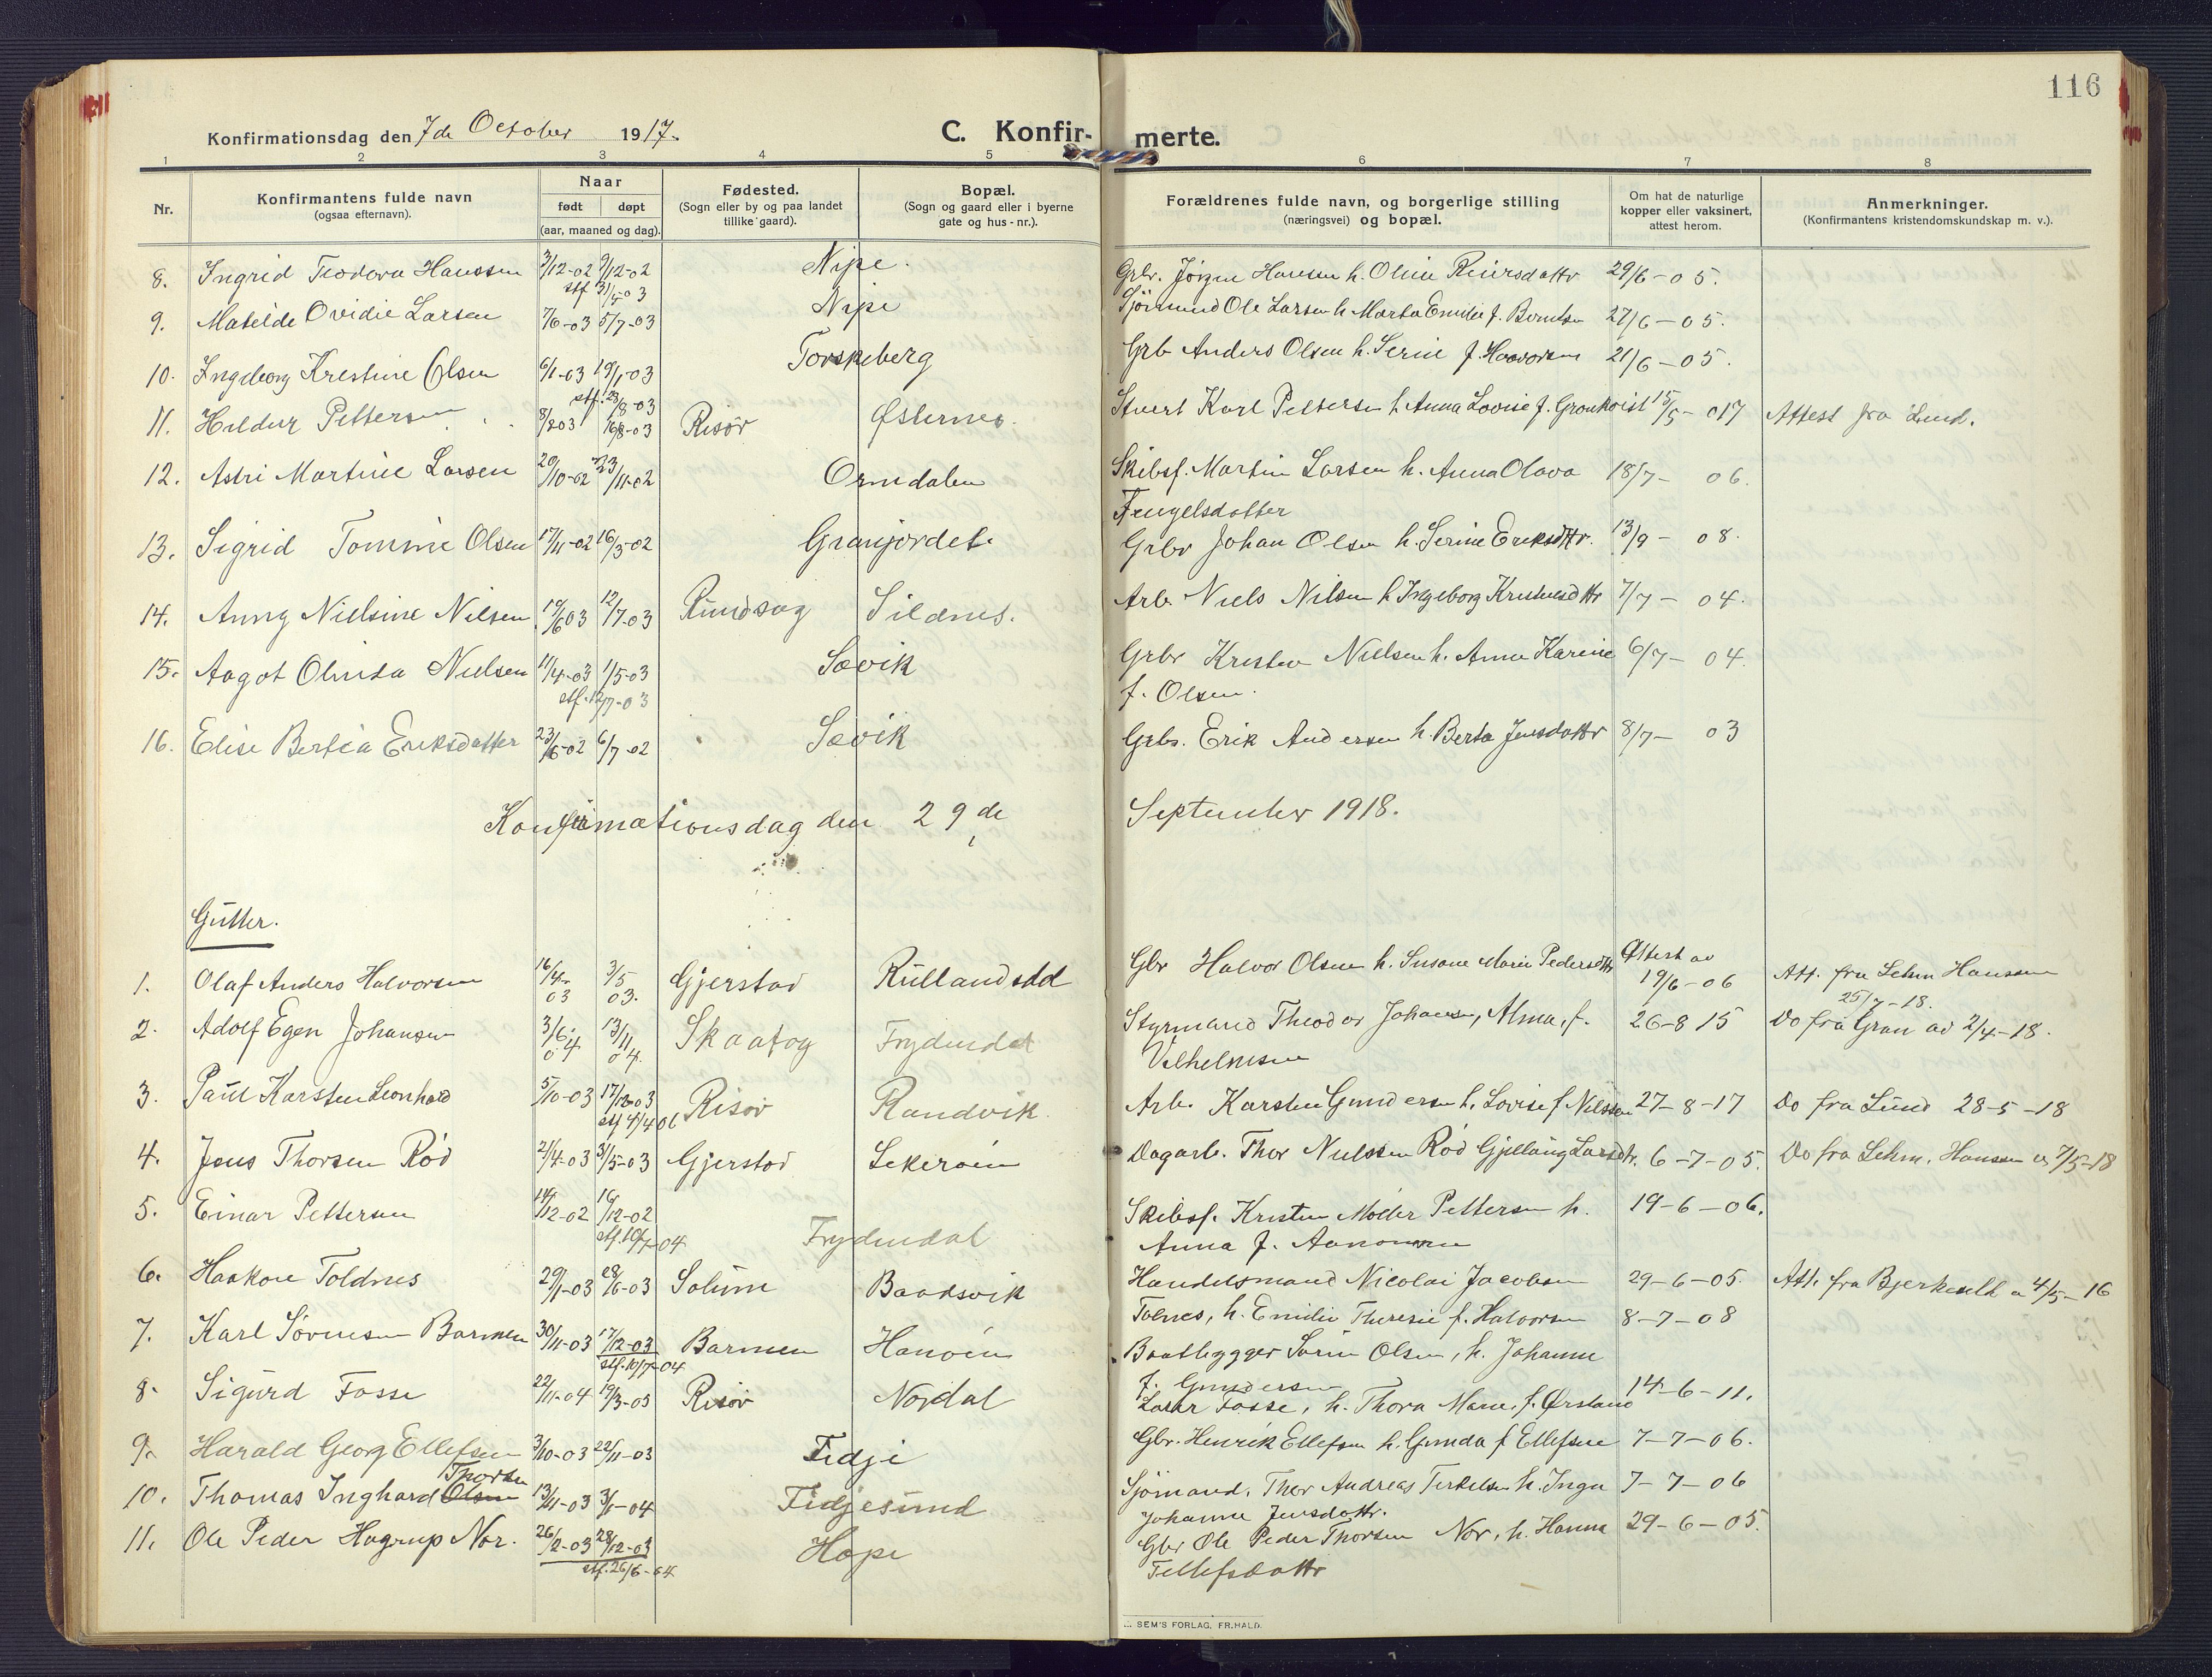 116
Konfirmationsdag den 7de October 1917.
C. Konfir- merte.
1 2 3 4 5 6 7 8
Nr.
Konfirmantens fulde navn
(ogsaa efternavn).
Naar
født døpt
(aar, maaned og dag).
Fødested.
(Sogn eller by og paa landet
tillike gaard).
Bopæl.
(Sogn og gaard eller i byerne
gate og hus-nr.).
Forældrenes fulde navn, og borgerlige stilling
(næringsvei) og bopæl.
Om hat de naturlige
kopper eller vaksinert,
attest herom.
Anmerkninger.
(Konfirmantens kristendomskundskap m. v.).
8. Ingrid Teodora Hanssen 3/12-02 9/12-02 Nipe. Grbr. Jørgen Hanssen h. Oline Reiersdattr 29/6-05.
stf 31/5-03
9. Matilde Ovidie Larsen 7/6-03 5/7-03 Nipe Sjømand Ole Larsen h. Marta Emilie f. Berntsen 27/6-05.
10. Ingeborg Kristine Olsen 6/1-03 19/1-03 Torskeberg Grb Anders Olsen h. Serine f. Haavorsen 21/6-05.
stf. 23/8-03
11. Hildur Pettersen 8/2 03 16/8-03 Risør Østernes. Stuert Karl Pettersen h. Anna Lovise f. Gronkvist 15/5-017 Attest fra Lund.
12. Astri Martine Larsen 20/10-02 23/11-02 Ormdalen Skibsf. Martin Larsen h. Anna Olava 18/7-06.
Fengelsdatter
13. Sigrid Tomine Olsen 17/11-02 16/3-02 Granjordet. Grbr Johan Olsen h. Serine Eriksdttr. 13/9-08.
14. Anny Nielsine Nilsen 19/6 03 12/7-03 Rundsag Sildnes. Arb. Niels Nilsen h. Ingeborg Kristensdttr 7/7-04.
15. Aagot Olinda Nielsen 11/4-03 1/5-03 Søvik Grbr Kristen Nielsen h. Anne Karine 6/7-04.
stf. 12/7-03 f. Olsen.
16. Elise Bertea Eriksdatter 23/6-02 6/7-02 Søvik Grbr. Erik Andersen h. Berta Jensdattr 8/7-03
Konfirmationsdag den 29de September 1918.
Gutter.
1. Olaf Anders Halvorsen 16/4-03 3/5 03. Gjerstad Rullandsdd Gbr Halvor Olsen h. Susane Marie Pedersdttr Attest av 19/6-06 Att. fra Lehm Hanssen
25/7-18.
2. Adolf Egen Johansen 3/6 04 13/11 04. Skaatøy Frydendal Styrmand Theodor Johansen, Alma, f. 26-8 15 Do fra Gran av 2/4-18.
Vilhelmsen
3. Paul Karsten Leonhard 5/10-03 17/12-03 Risør Randvik Arb. Karsten Gundersen h. Lovise f Nilssen 27-8-17 Do fra Lund 28-5-18
stf 4/4 06
4. Jens Thorsen Rød 21/4-03 31/5-03 Gjerstad Lekerøien Dagarb. Thor Nielssen Rød Gjellaug Larsdtr. 6-7-05. Do fra Lehm. Hanssen av 7/5-18
5. Einar Pettersen 14/12-02 16/12-02 Skibsf. Kristen Møller Pettersen h. 19-6-06.
stf. 10/7-04 Frydendal Anna f. Aanonsen
6. Haakon Toldnes 29/1-03 28/6-03 Solum Baadsvik Handelsmand Nicolai Jacobsen 29-6-05. Att. fra Bjerkeseth a 4/5-16
Tolnes, h. Emilie Theresie f. Halvorsen 8-7-08
7. Karl Sørensen Barmen 30/11-03 17/12-03 Barmen Hanøien Baatbygger Sørin Olsen, h. Johanne
stf. 10/7-04 f. Gundersen
8. Sigurd Fosse 22/11-04 19/3-05 Risør Nordal Lasar Fosse, h. Thora Marie, f. Ørsland 14-6-11.
9. Harald Georg Ellefsen 3/10-03 22/11-03 Fidje Gbr. Henrik Ellefsen h. Gunda f Ellefsen 7-7-06.
10. Thomas Inghard Olsen Thorsen 13/11-03 3/1-04 Fidjesund Sjømand. Thor Andreas Terkelsen h. Inga 7-7-06
Johanne Jensdattr.
11. Ole Peder Hagrup Nor. 26/2-03 28/12-03 Hope Gbr Ole Peder Thorsen Nor, h. Hanna 29-6-05.
stf. 26/6-04 Tellefsdattr
SEM'S FORLAG, FR.HALD.